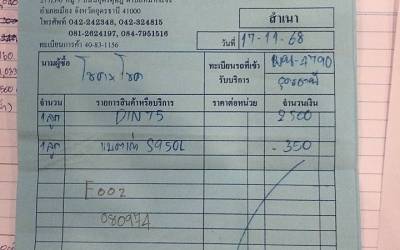 อำเภอเมือง จังหวัดอุดรธานี 41000
โทรศัพท์ 042-242348, 042-324815
081-2624197, 084-7951516
ทะเบียนการค้า 40-83-1156
สำเนา
วันที่ 17-11-68
นามผู้ซื้อ
ทะเบียนรถที่เข้ารับบริการ 4790
อุดรธานี
จำนวน รายการสินค้าหรือบริการ ราคาต่อหน่วย จำนวนเงิน
1 ลูก DIN 75 2500
1 ลูก แบตเก่า S950L -350
F002
080974